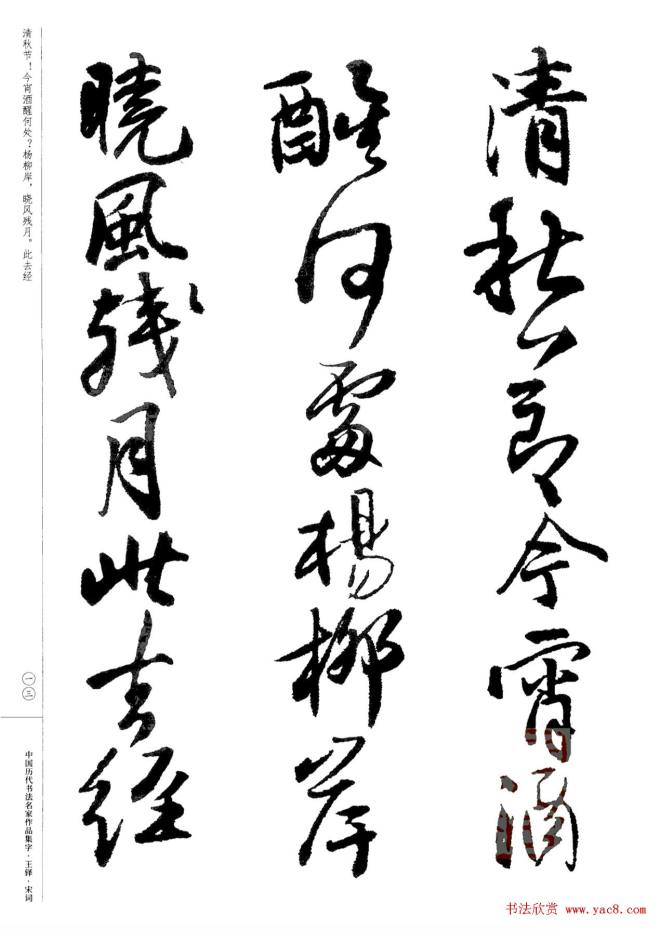 清秋節今宵酒
醒何處楊柳岸
曉風殘月此去經
清秋节！今宵酒醒何处？杨柳岸，晓风残月。此去经
一三
中国历代书法名家作品集字·王铎·宋词
书法欣赏 www.yac8.com